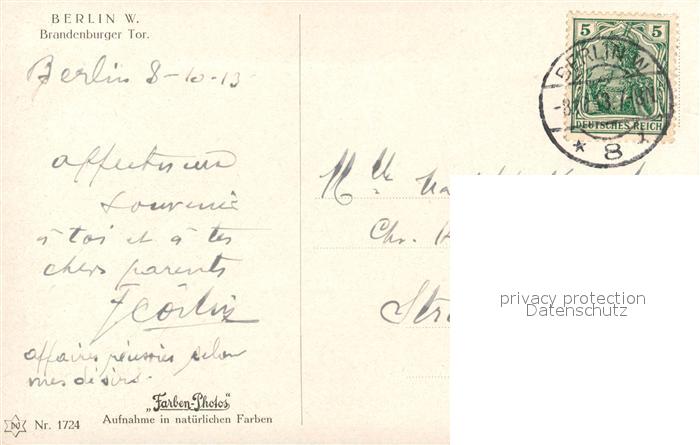 BERLIN W.
Brandenburger Tor.
Berlin 8-10-13
5 5
DEUTSCHES REICH
BERLIN W.
* 8
affectueux
souvenir
à toi et à tes
chers parents
affaires réussies selon
mes désirs.
Mlle
Chr.
Str
privacy protection
Datenschutz
„Farben-Photos"
Aufnahme in natürlichen Farben
Nr. 1724